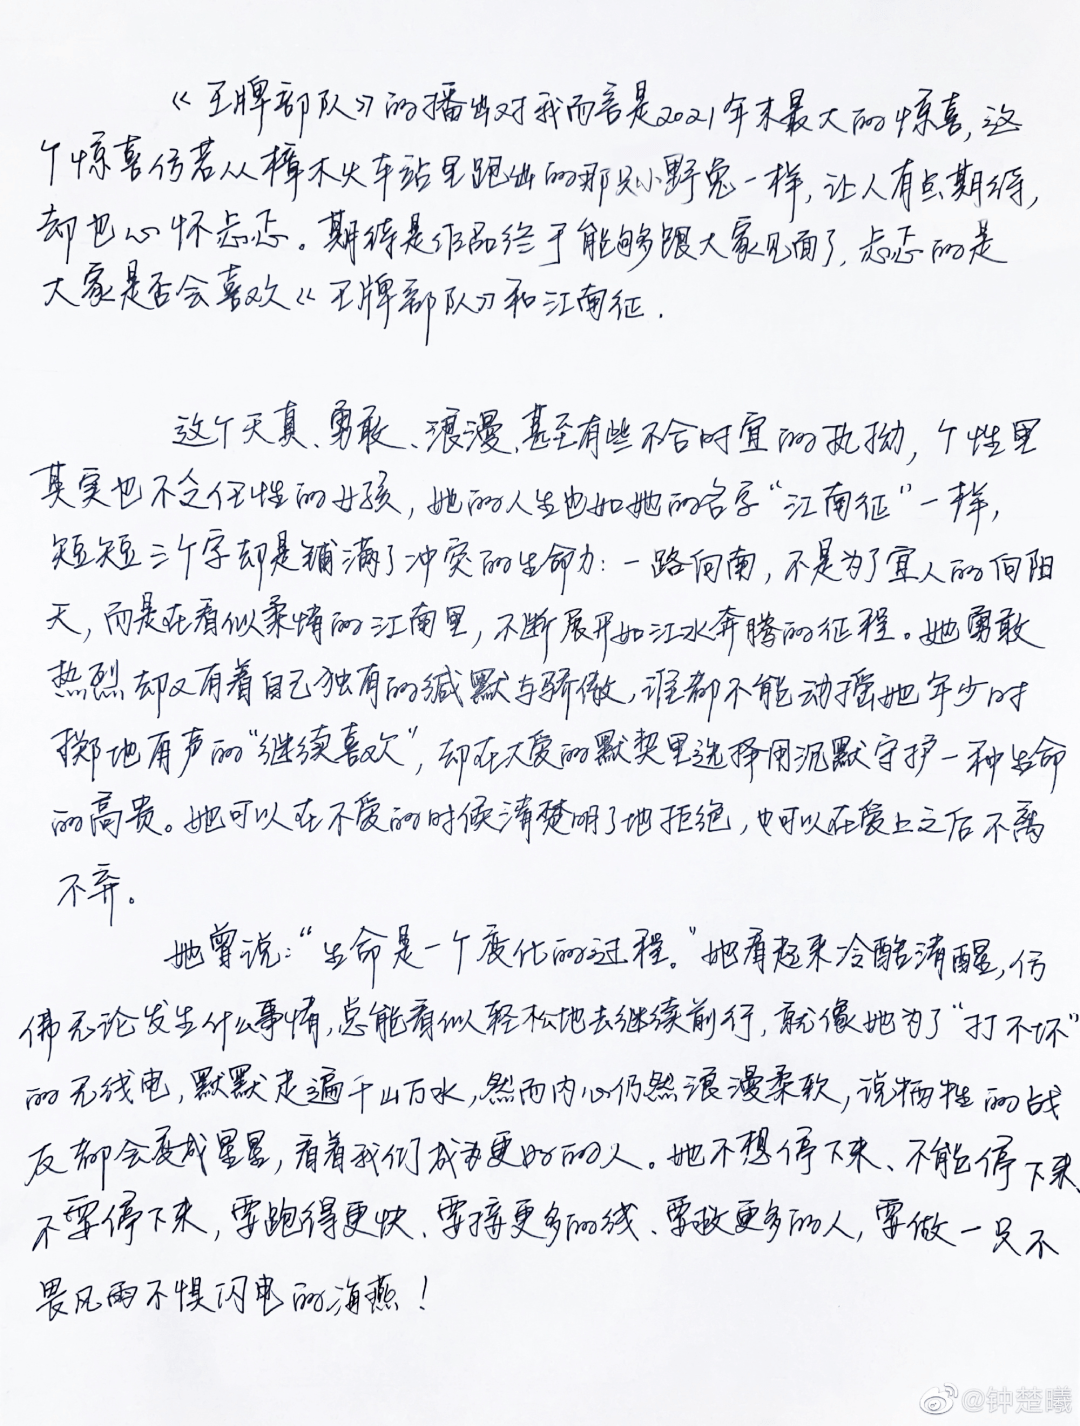 《王牌部队》的播出对我而言是2021年末最大的惊喜,这
个惊喜仿若从樟木火车站里跑出的那只小野兔一样,让人有点期待,
却也心怀忐忑。期待是作品终于能够跟大家见面了,忐忑的是
大家是否会喜欢《王牌部队》和江南征.
这个天真、勇敢、浪漫、甚至有些不合时宜的执拗,个性里
其实也不乏任性的女孩,她的人生也如她的名字“江南征”一样,
短短三个字却是铺满了冲突的生命力:一路向南,不是为了宜人的向阳
天,而是在看似柔情的江南里,不断展开如江水奔腾的征程。她勇敢
热烈却又有着自己独有的缄默与骄傲,谁都不能动摇她年少时
掷地有声的“继续喜欢”,却在大爱的默契里选择用沉默守护一种生命
的高贵。她可以在不爱的时候清楚明了地拒绝,也可以在爱上之后不离
不弃。
她曾说:“生命是一个变化的过程。”她看起来冷酷清醒,仿
佛无论发生什么事情,总能看似轻松地去继续前行,就像她为了“打不坏”
的无线电,默默走遍千山万水,然而内心仍然浪漫柔软,说牺牲的战
友都会变成星星,看着我们成为更好的人。她不想停下来、不能停下来、
不要停下来,要跑得更快、要接更多的线、要救更多的人,要做一只不
畏风雨不惧闪电的海燕!
@钟楚曦